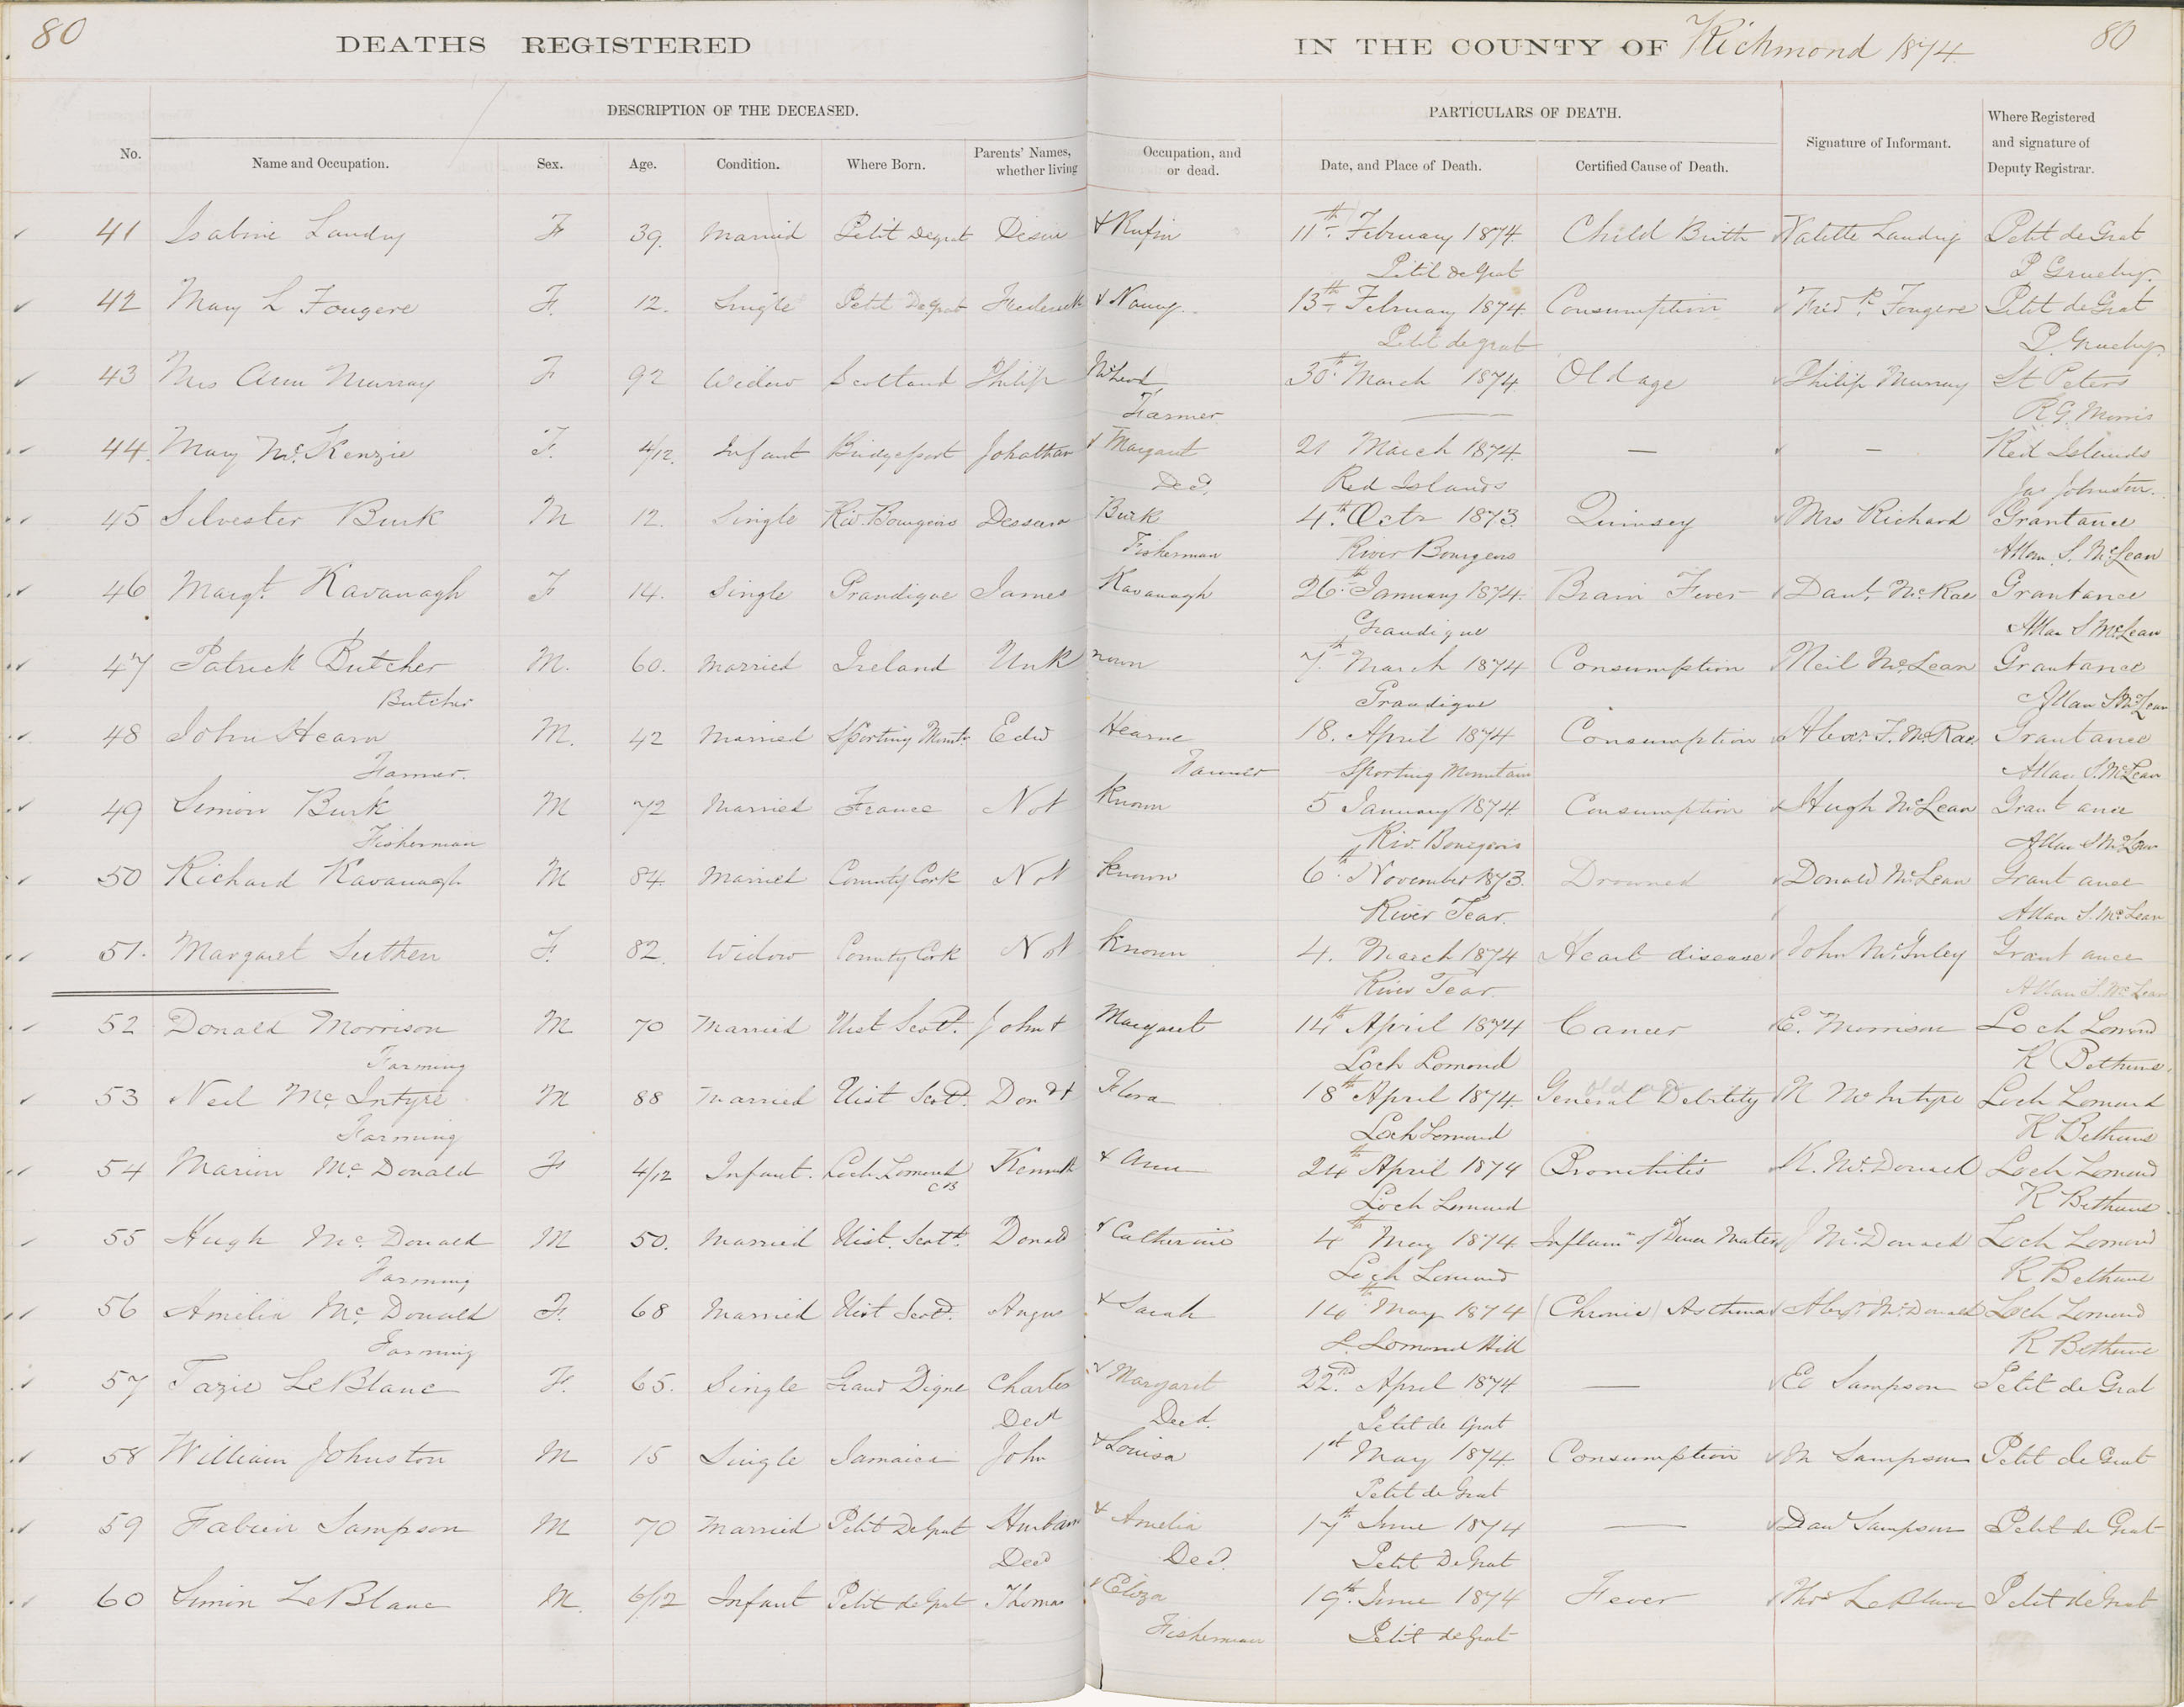 80 DEATHS REGISTERED IN THE COUNTY OF Richmond 1874 80
DESCRIPTION OF THE DECEASED. PARTICULARS OF DEATH.
No. Name and Occupation. Sex. Age. Condition. Where Born. Parents' Names, whether living Occupation, and or dead. Date, and Place of Death. Certified Cause of Death. Signature of Informant. Where Registered and signature of Deputy Registrar.
41 Isabine Landry F 39. Married Petit Degrat Desire & Rufin 11th February 1874. Child Birth Valette Landry Petit de Grat
Petit de Grat P Grueby.
42 Mary L Fougere F. 12. Single Petit Degrat Frederick & Nancy. 13th February 1874 Consumption Fredk. Fougere Petit de Grat
Petit de grat P. Grueby.
43 Mrs Ann Murray F 92 Widow Scotland Philip McLeod 30th March 1874. Old age Philip Murray St Peters
Farmer R.G. Morris
44. Mary McKenzie F. 4/12. Infant Bridgeport Johathan & Margaret 21 March 1874. — — Red Islands
Decd. Red Islands Jas Johnston.
45 Silvester Burk M 12. Single Riv. Bourgeois Burk 4th Octr 1873 Quinsey Mrs Richard Grantance
Fisherman River Bourgeois Allan. S. McLean
46 Margt. Kavanagh F 14. Single Grandique James Kavanagh 26th January 1874. Brain Fever Danl. McRae Grantance
Grandique Allan S McLean
47 Patrick Butcher M. 60. Married Ireland Unk nown 7th March 1874 Consumption Neil McLean Grantance
Butcher Grandique Allan S McLean
48 John Hearn M. 42 Married Sporting Mount. Edw Hearne 18. April 1874 Consumption Alexr. F. McRae. Grantance
Farmer. Farmer Sporting Mountain Allan S. McLean
49 Simon Burk M 72 Married France Not Known 5 January 1874. Consumption Hugh McLean Grant ance
Fisherman Riv. Bourgeois Allan S McLean
50 Richard Kavanagh M 84 Married County Cork Not Known 6th November 1873. Drowned Donald McLean Grant ance
River Tear. Allan S. McLean
51. Margaret Suthen F. 82. Widow County Cork Not Known 4. March 1874 Heart disease John McGuley Grant ance
River Tear Allan S. McLean
52 Donald Morrison M 70 Married Uist Scotd. John & Margaret 14th April 1874 Cancer E. Morrison Loch Lomond
Farming Loch Lomond R Bethune.
53 Neil McIntyre M 88 Married Uist Scotd. Dond & Flora 18th April 1874. old age General Debility N McIntyre Loch Lomond
Farming Loch Lomond R Bethune
54 Marion McDonald F 4/12 Infant. Loch Lomond CB Kenneth & Ann 24th April 1874 Bronchitis K. McDonald Loch Lomond
Loch Lomond R Bethune.
55 Hugh McDonald M 50. Married Uist. Scotd. Donald & Catherine 4th May 1874. Inflamn of Dura Mater J McDonald Loch Lomond
Farming Loch Lomond R Bethune
56 Amelia McDonald F. 68 Married Uist Scotd. Angus & Sarah 14th May 1874 (Chronic) Asthma Alexr McDonald Loch Lomond
Farming L. Lomond Hill R Bethune
57 Tazie LeBlanc F. 65. Single Grand Digue Charles & Margaret 22nd. April 1874 — E Sampson Petit de Grat
Decd Decd. Petit de Grat
58 William Johnston M 15 Single Jamaica John & Louisa 1st May 1874 Consumption M Sampson Petit de Grat
Petit de Grat
59 Fabien Sampson M 70 Married Petit DeGrat Hurban & Amelia 17th June 1874 — Dan Sampson Petit de Grat
Decd Decd. Petit DeGrat
60 Simon LeBlanc M. 6/12 Infant Petit de Grat Thomas & Eliza 19th. June 1874 Fever Thos LeBlanc Petit de Grat
Fisherman Petit de Grat